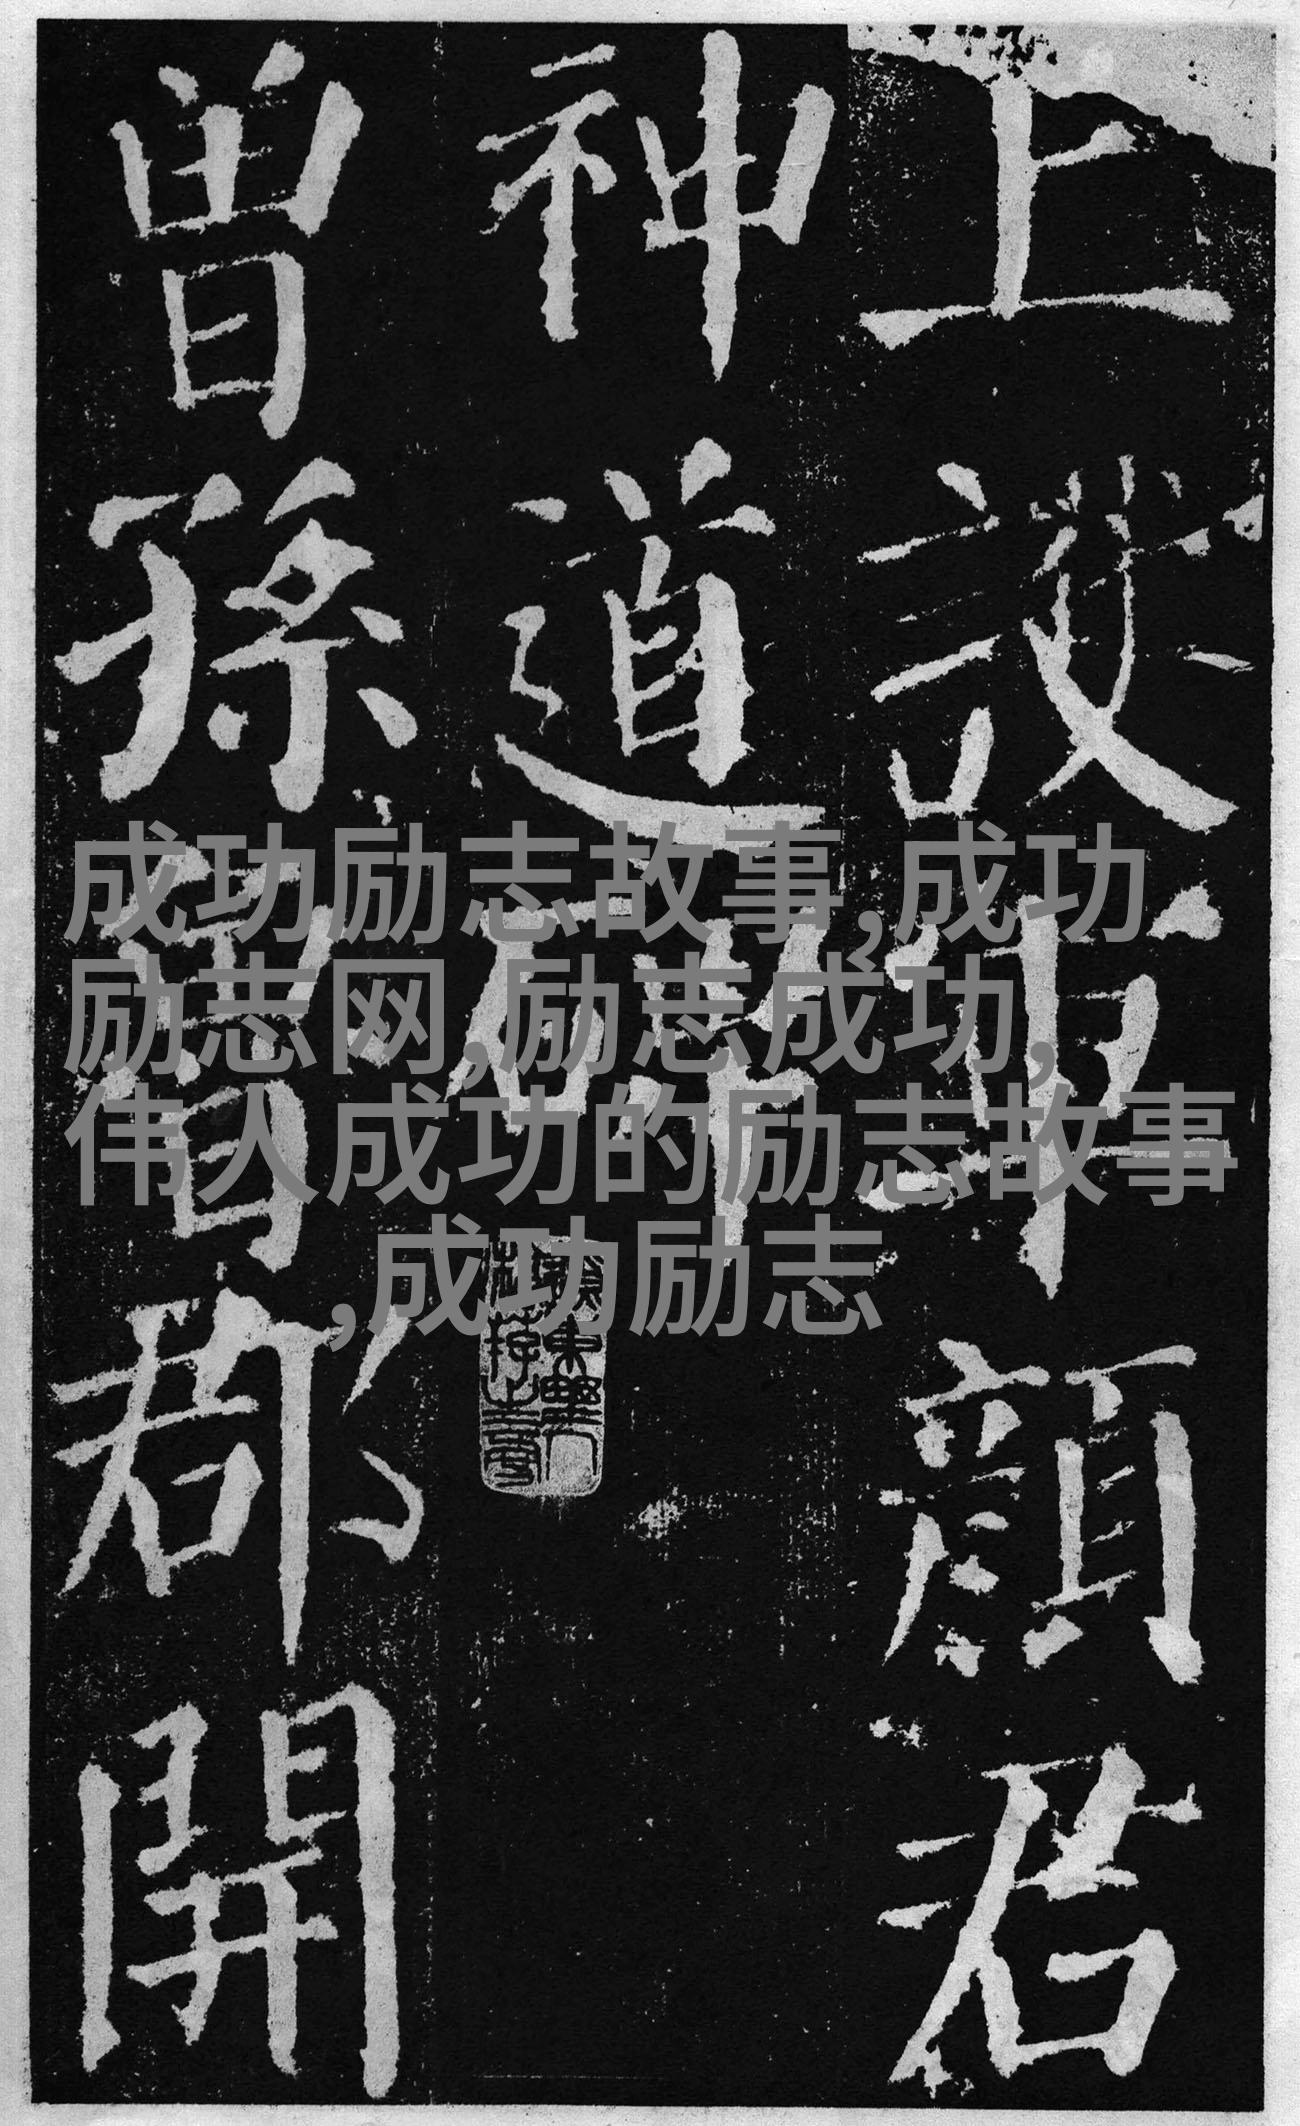 上護軍顏君
神道碑
曾孫魯郡開
成功励志故事,成功
励志网,励志成功,
伟人成功的励志故事
,成功励志